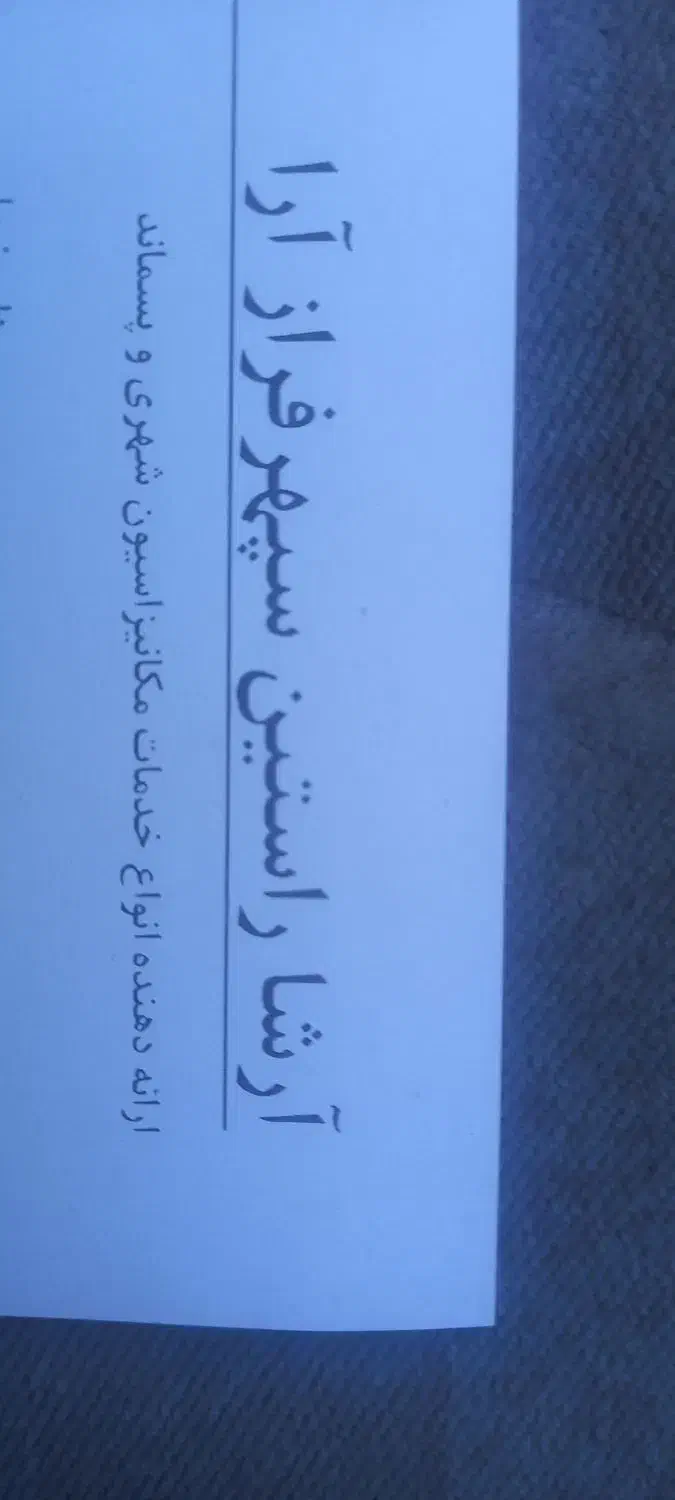 آرشا راستین سپهر فراز آرا
ارائه دهنده انواع خدمات مکانیزاسیون شهری و پسماند